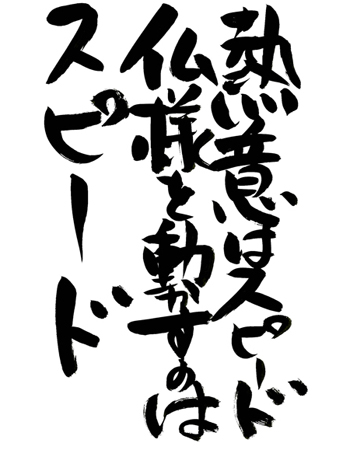 熱意はスピード
仏様を動かすのは
スピード